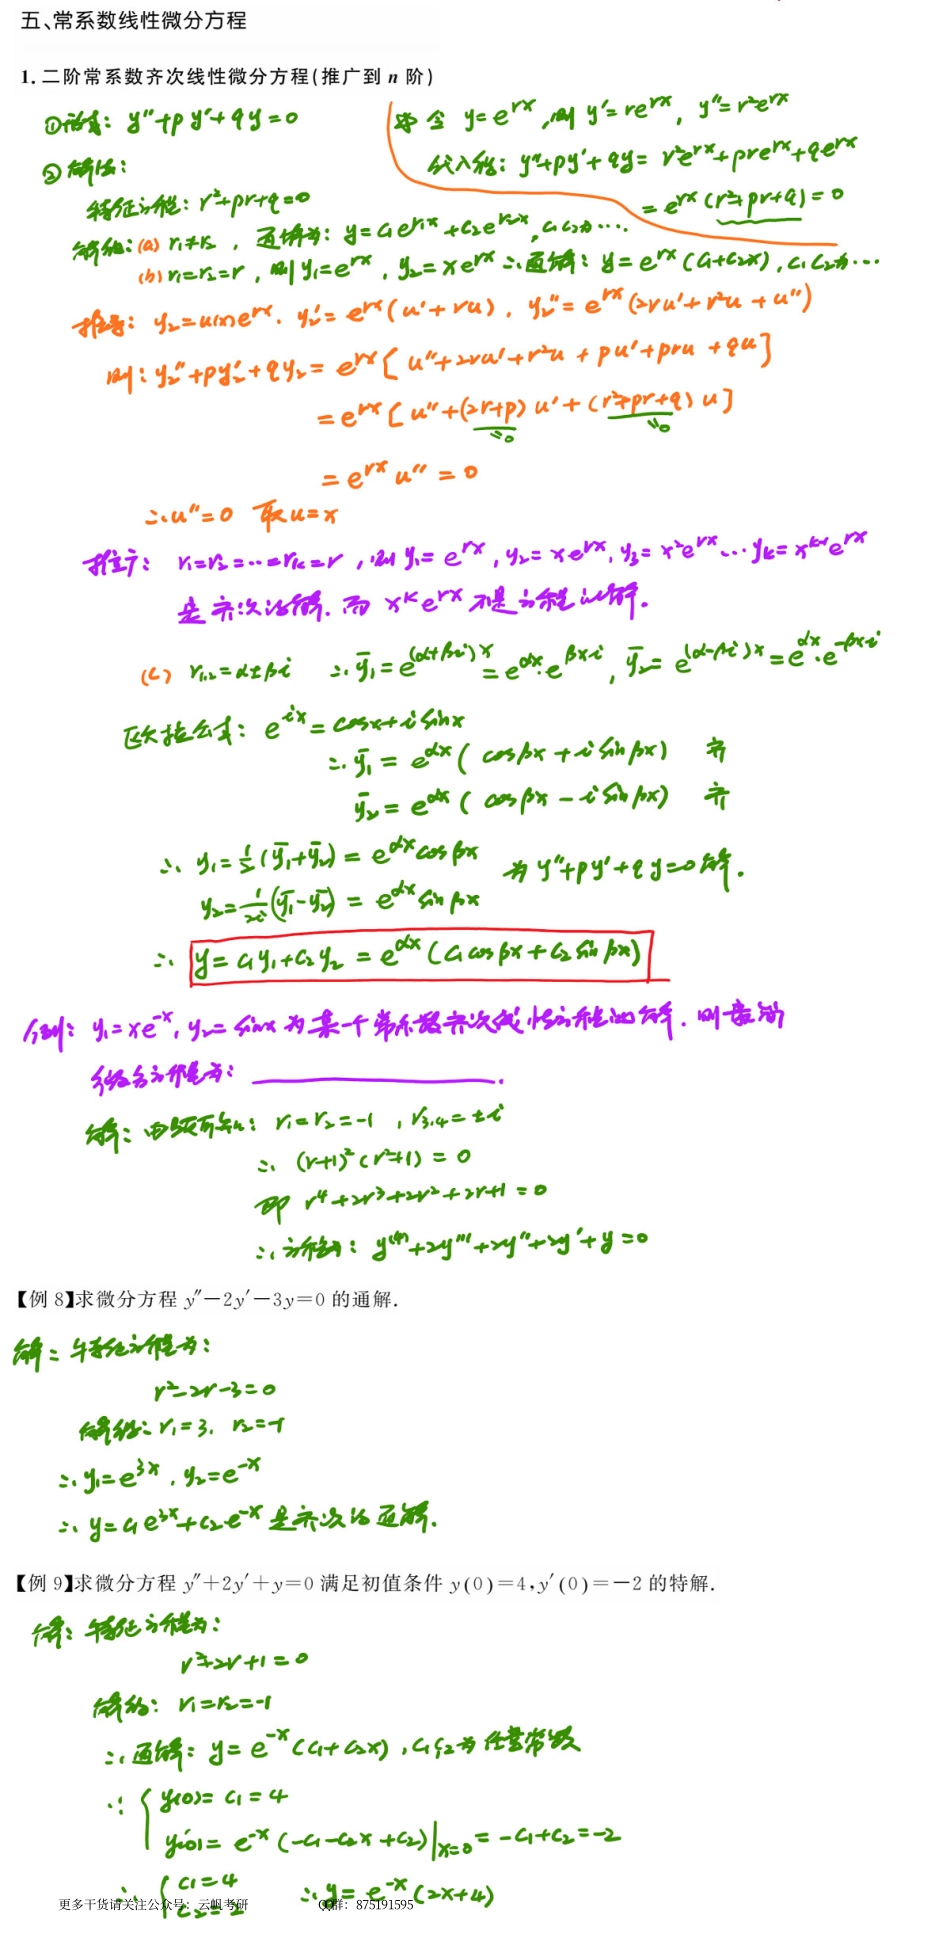 五、常系数线性微分方程
1. 二阶常系数齐次线性微分方程(推广到 n 阶)
①形式: y''+py'+qy=0
令 y=e^{rx}, 则 y'=re^{rx}, y''=r²e^{rx}
代入得: y''+py'+qy= r²e^{rx}+pre^{rx}+qe^{rx}
= e^{rx}(r²+pr+q)=0
②解法:
特征方程: r²+pr+q=0
解得:(a) r₁≠r₂, 通解为: y=c₁e^{r₁x}+c₂e^{r₂x}, c₁c₂为…
(b) r₁=r₂=r, 则 y₁=e^{rx}, y₂=xe^{rx} ∴通解: y=e^{rx}(c₁+c₂x), c₁c₂为…
推导: y₂=u(x)e^{rx}. y₂'=e^{rx}(u'+ru), y₂''=e^{rx}(2ru'+r²u+u'')
则: y₂''+py₂'+qy₂= e^{rx}[u''+2ru'+r²u+pu'+pru+qu]
= e^{rx}[u''+(2r+p)u'+(r²+pr+q)u]
=0 =0
= e^{rx}u''=0
∴u''=0 取u=x
推广: r₁=r₂=…=r_k=r, 则 y₁=e^{rx}, y₂=xe^{rx}, y₃=x²e^{rx}…y_k=x^{k-1}e^{rx}
是齐次的解. 而 x^k e^{rx} 不是方程的解.
(c) r₁,₂=α±βi ∴ȳ₁=e^{(α+βi)x}=e^{αx}·e^{βxi}, ȳ₂=e^{(α-βi)x}=e^{αx}·e^{-βxi}
欧拉公式: e^{ix}=cosx+isinx
∴ȳ₁=e^{αx}(cosβx+isinβx) 齐
ȳ₂=e^{αx}(cosβx-isinβx) 齐
∴ y₁=½(ȳ₁+ȳ₂)=e^{αx}cosβx
为 y''+py'+qy=0解.
y₂=1/2i(ȳ₁-ȳ₂)=e^{αx}sinβx
∴ y=c₁y₁+c₂y₂=e^{αx}(c₁cosβx+c₂sinβx)
例: y₁=xe^{-x}, y₂=sinx为某个常系数齐次线性方程的解. 则
微分方程为: ________.
解: 由题可知: r₁=r₂=-1, r₃,₄=±i
∴ (r+1)²(r²+1)=0
即 r⁴+2r³+2r²+2r+1=0
∴方程为: y⁽⁴⁾+2y'''+2y''+2y'+y=0
【例 8】求微分方程 y''-2y'-3y=0 的通解.
解: 特征方程为:
r²-2r-3=0
解得: r₁=3, r₂=-1
∴y₁=e^{3x}, y₂=e^{-x}
∴ y=c₁e^{3x}+c₂e^{-x} 是齐次的通解.
【例 9】求微分方程 y''+2y'+y=0 满足初值条件 y(0)=4,y'(0)=-2 的特解.
解: 特征方程为:
r²+2r+1=0
解得: r₁=r₂=-1
∴通解: y=e^{-x}(c₁+c₂x), c₁c₂为任意常数
∵ { y(0)=c₁=4
y'(0)=e^{-x}(-c₁-c₂x+c₂)|_{x=0}=-c₁+c₂=-2
∴ { c₁=4
c₂=2
∴y=e^{-x}(2x+4)
更多干货请关注公众号：云帆考研 QQ群：875191595